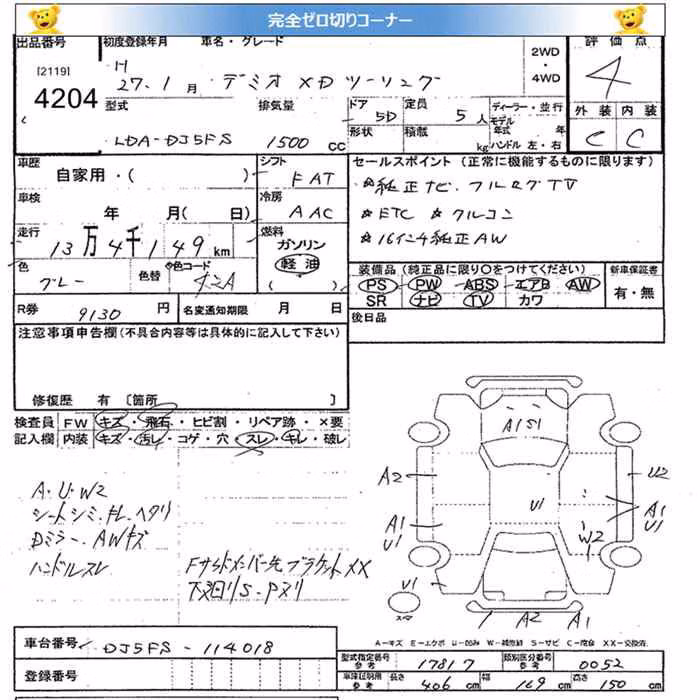 完全ゼロ切りコーナー
出品番号
[2119]
4204
初度登録年月 車名・グレード
H
27.1月 デミオ XDツーリング
2WD
・
4WD
評価点
4
外装 内装
C C
型式 排気量 ドア 定員 ディーラー・並行
5D 5人 モデル
年式 年
LDA-DJ5FS 1500cc 形状 積載 kg ハンドル 左・右
車歴
自家用・( )
シフト
FAT
セールスポイント (正常に機能するものに限ります)
☆純正ナビ.フルセグTV
☆ETC ☆クルコン
☆16インチ純正AW
車検
年 月(日)
冷房
AAC
走行
13万4千149km
燃料
ガソリン
軽油
( )
色
グレー
色替
色コード
装備品 (純正品に限り○をつけてください)
PS PW ABS エアB AW
SR ナビ TV カワ
新車保証書
有・無
R券 9130円
名変通知期限 月 日
後日品
注意事項申告欄(不具合内容等は具体的に記入して下さい)
修復歴 有 〔箇所 〕
検査員 FW キズ・飛石・ヒビ割・リペア跡・×要
記入欄 内装 キズ・汚レ・コゲ・穴・スレ・キレ・破レ
A.U.W2
シートシミ.キレ.ヘタリ
Dミラー.AWキズ
ハンドルスレ
Fサイドメンバー先ブラケットXX
下廻りS.Pヌリ
A1S1
A2
U2
U1
A1
U1
A1
U1
W2
U1
スペア
A2
A1
A-キズ E-エクボ U-凹み W-補修跡 S-サビ C-腐食 XX-交換済
車台番号 DJ5FS-114018
登録番号
型式指定番号
参考
17817
類別区分番号
参考
0052
車庫証明用
参考
長さ 406cm 幅 169cm 高さ 150cm